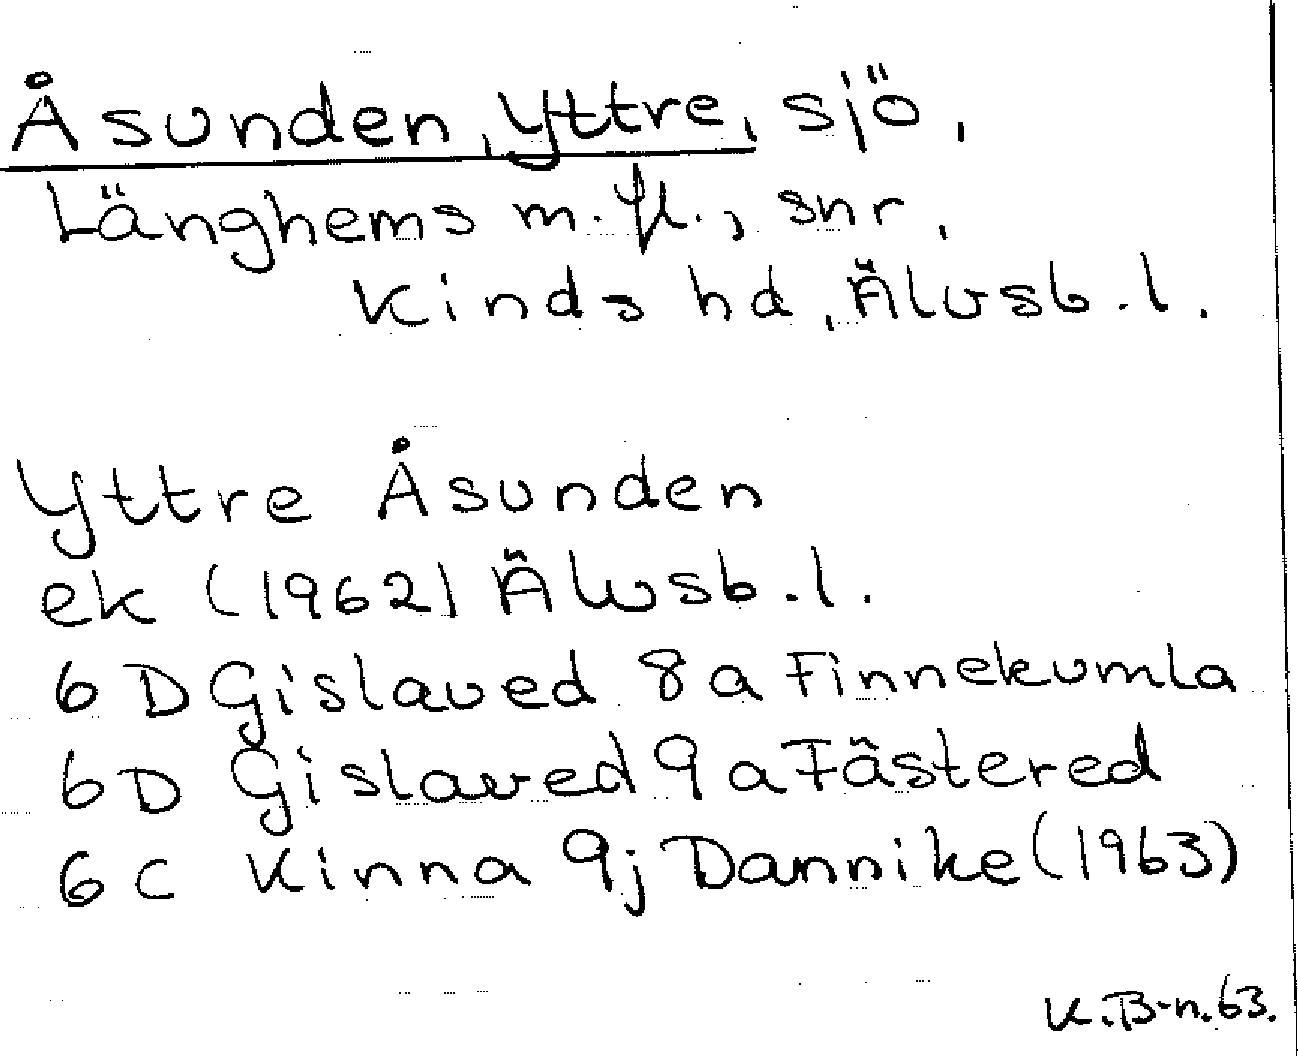 Åsunden, Yttre, sjö,
Länghems m.fl., snr,
Kinds hd, Älvsb.l.
Yttre Åsunden
ek (1962) Älvsb.l.
6 D Gislaved 8a Finnekumla
6 D Gislaved 9a Fästered
6 C Kinna 9j Dannike (1963)
K.B-n.63.